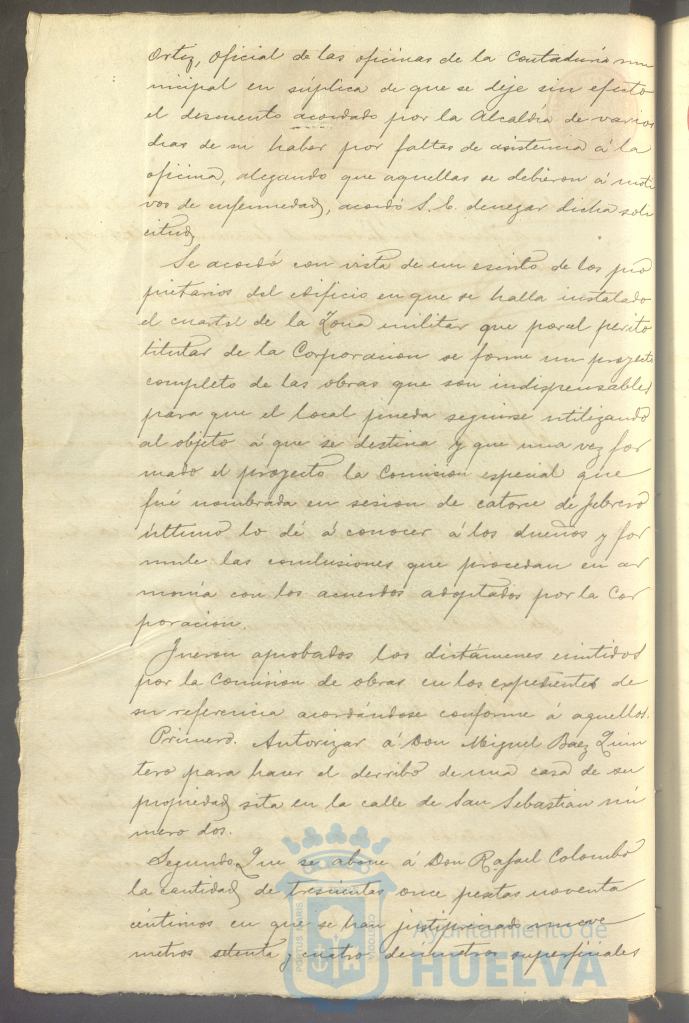 Ortiz, oficial de las oficinas de la Contaduria mu
nicipal en súplica de que se deje sin efecto
el descuento acordado por la Alcaldía de varios
dias de su haber por faltas de asistencia á la
oficina, alegando que aquellas se debieron á moti
vos de enfermedad, acordó S. E. denegar dicha soli
citud,
Se acordó con vista de un escrito de los pro
pietarios del edificio en que se halla instalado
el cuartel de la Zona militar que por el perito
titular de la Corporacion se forme un proyecto
completo de las obras que son indispensables
para que el local pueda seguirse utilizando
al objeto á que se destina y que una vez for
mado el proyecto la Comision especial que
fué nombrada en sesion de catorce de febrero
último lo dé á conocer á los dueños y for
mule las conclusiones que procedan en ar
monía con los acuerdos adoptados por la Cor
poracion.
Fueron aprobados los dictámenes emitidos
por la Comision de obras en los expedientes de
su referencia acordándose conforme á aquellos.
Primero. Autorizar á Don Miguel Baez Quin
tero para hacer el derribo de una casa de su
propiedad, sita en la calle de San Sebastian nú
mero dos.
Segundo. Que se abone á Don Rafael Colombo
la cantidad, de trescientas once pesetas noventa
céntimos en que se han justipreciado nueve
metros setenta y cuatro decimetros superficiales
PORTUS MARIS
CUSTODIA
Ayuntamiento de
HUELVA